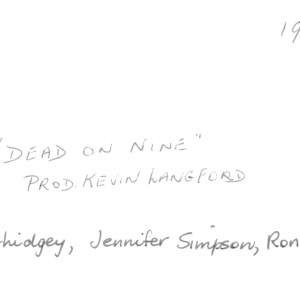 19
"DEAD ON NINE"
PROD. KEVIN LANGFORD
hidgey, Jennifer Simpson, Ron